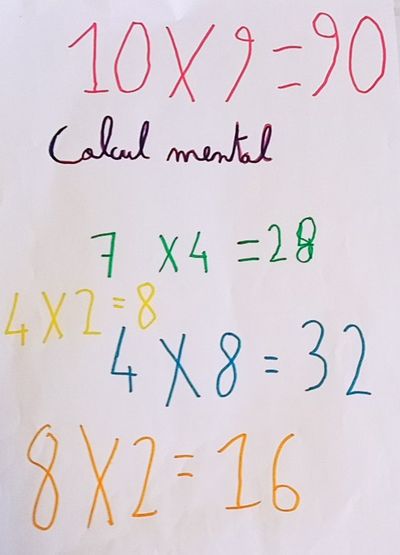 10 X 9 = 90
Calcul mental
7 X 4 = 28
4 X 2 = 8
4 X 8 = 32
8 X 2 = 16